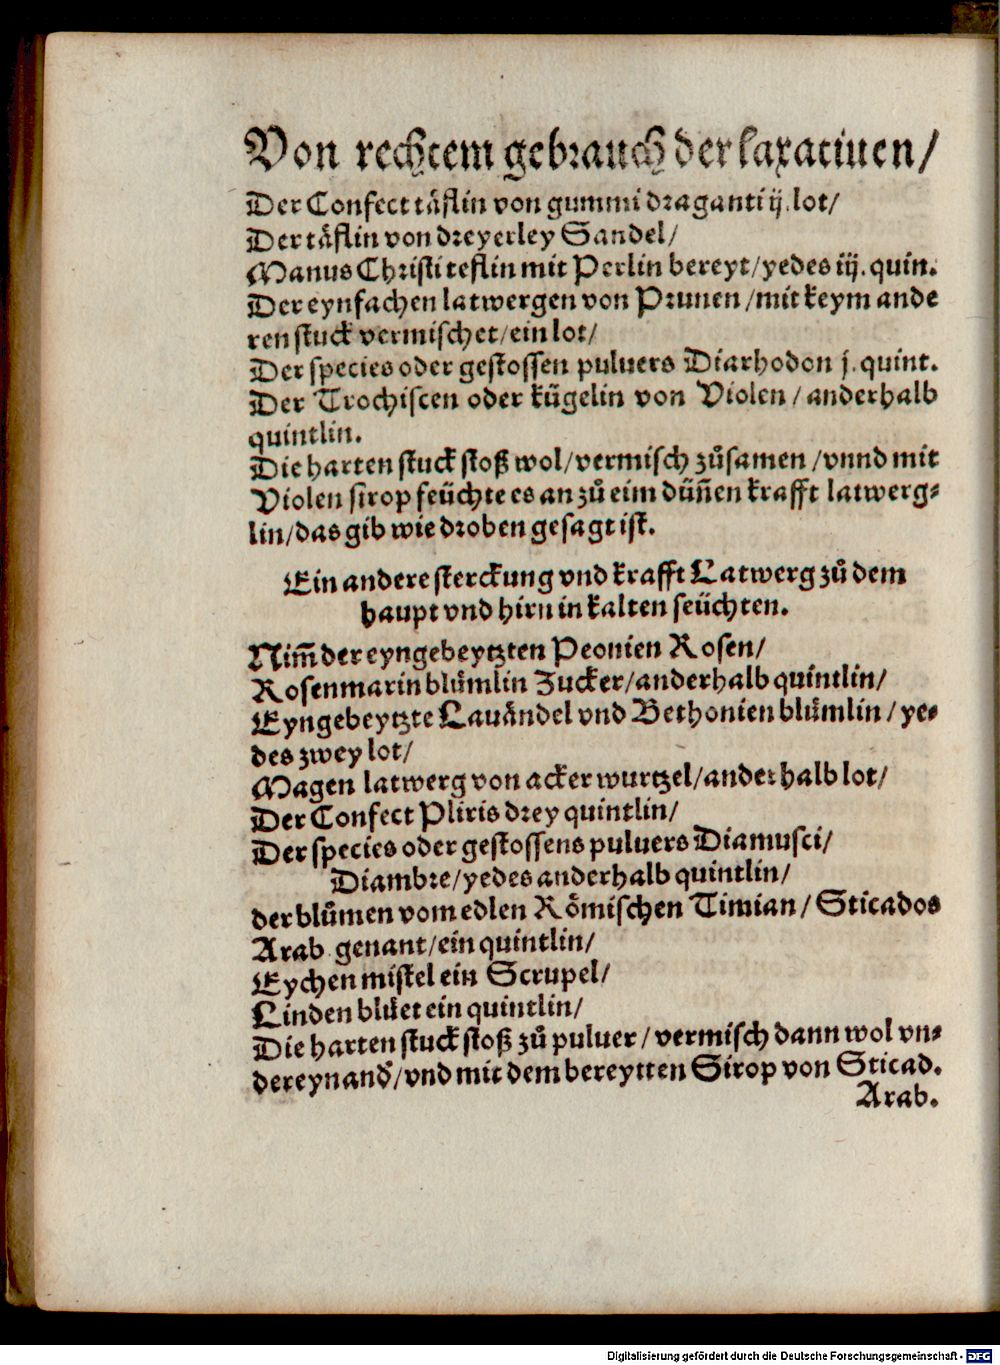 Von rechtem gebrauch der laxatiuen/
Der Confect täflin von gummi draganti ij. lot/
Der täflin von dreyerley Sandel/
Manus Christi teflin mit Perlin bereyt/yedes iij. quin.
Der eynfachen latwergen von Prunen/mit keym ande
ren stuck vermischet/ein lot/
Der species oder gestossen puluers Diarhodon j. quint.
Der Trochiscen oder kügelin von Violen/anderhalb
quintlin.
Die harten stuck stoß wol/vermisch zůsamen/vnnd mit
Violen sirop feüchte es an zů eim dün̄en krafft latwerg⸗
lin/das gib wie droben gesagt ist.
Ein andere sterckung vnd krafft Latwerg zů dem
haupt vnd hirn in kalten seüchten.
Nim̄ der eyngebeytzten Peonien Rosen/
Rosenmarin blůmlin Zucker/anderhalb quintlin/
Eyngebeytzte Lauändel vnd Bethonien blůmlin/ye⸗
des zwey lot/
Magen latwerg von acker wurtzel/anderhalb lot/
Der Confect Pliris drey quintlin/
Der species oder gestossens puluers Diamusci/
Diambre/yedes anderhalb quintlin/
der blůmen vom edlen Römischen Timian/Sticados
Arab. genant/ein quintlin/
Eychen mistel ein Scrupel/
Linden blüet ein quintlin/
Die harten stuck stoß zů puluer/vermisch dann wol vn⸗
dereynand/vnd mit dem bereytten Sirop von Sticad.
Arab.
Digitalisierung gefördert durch die Deutsche Forschungsgemeinschaft - DFG